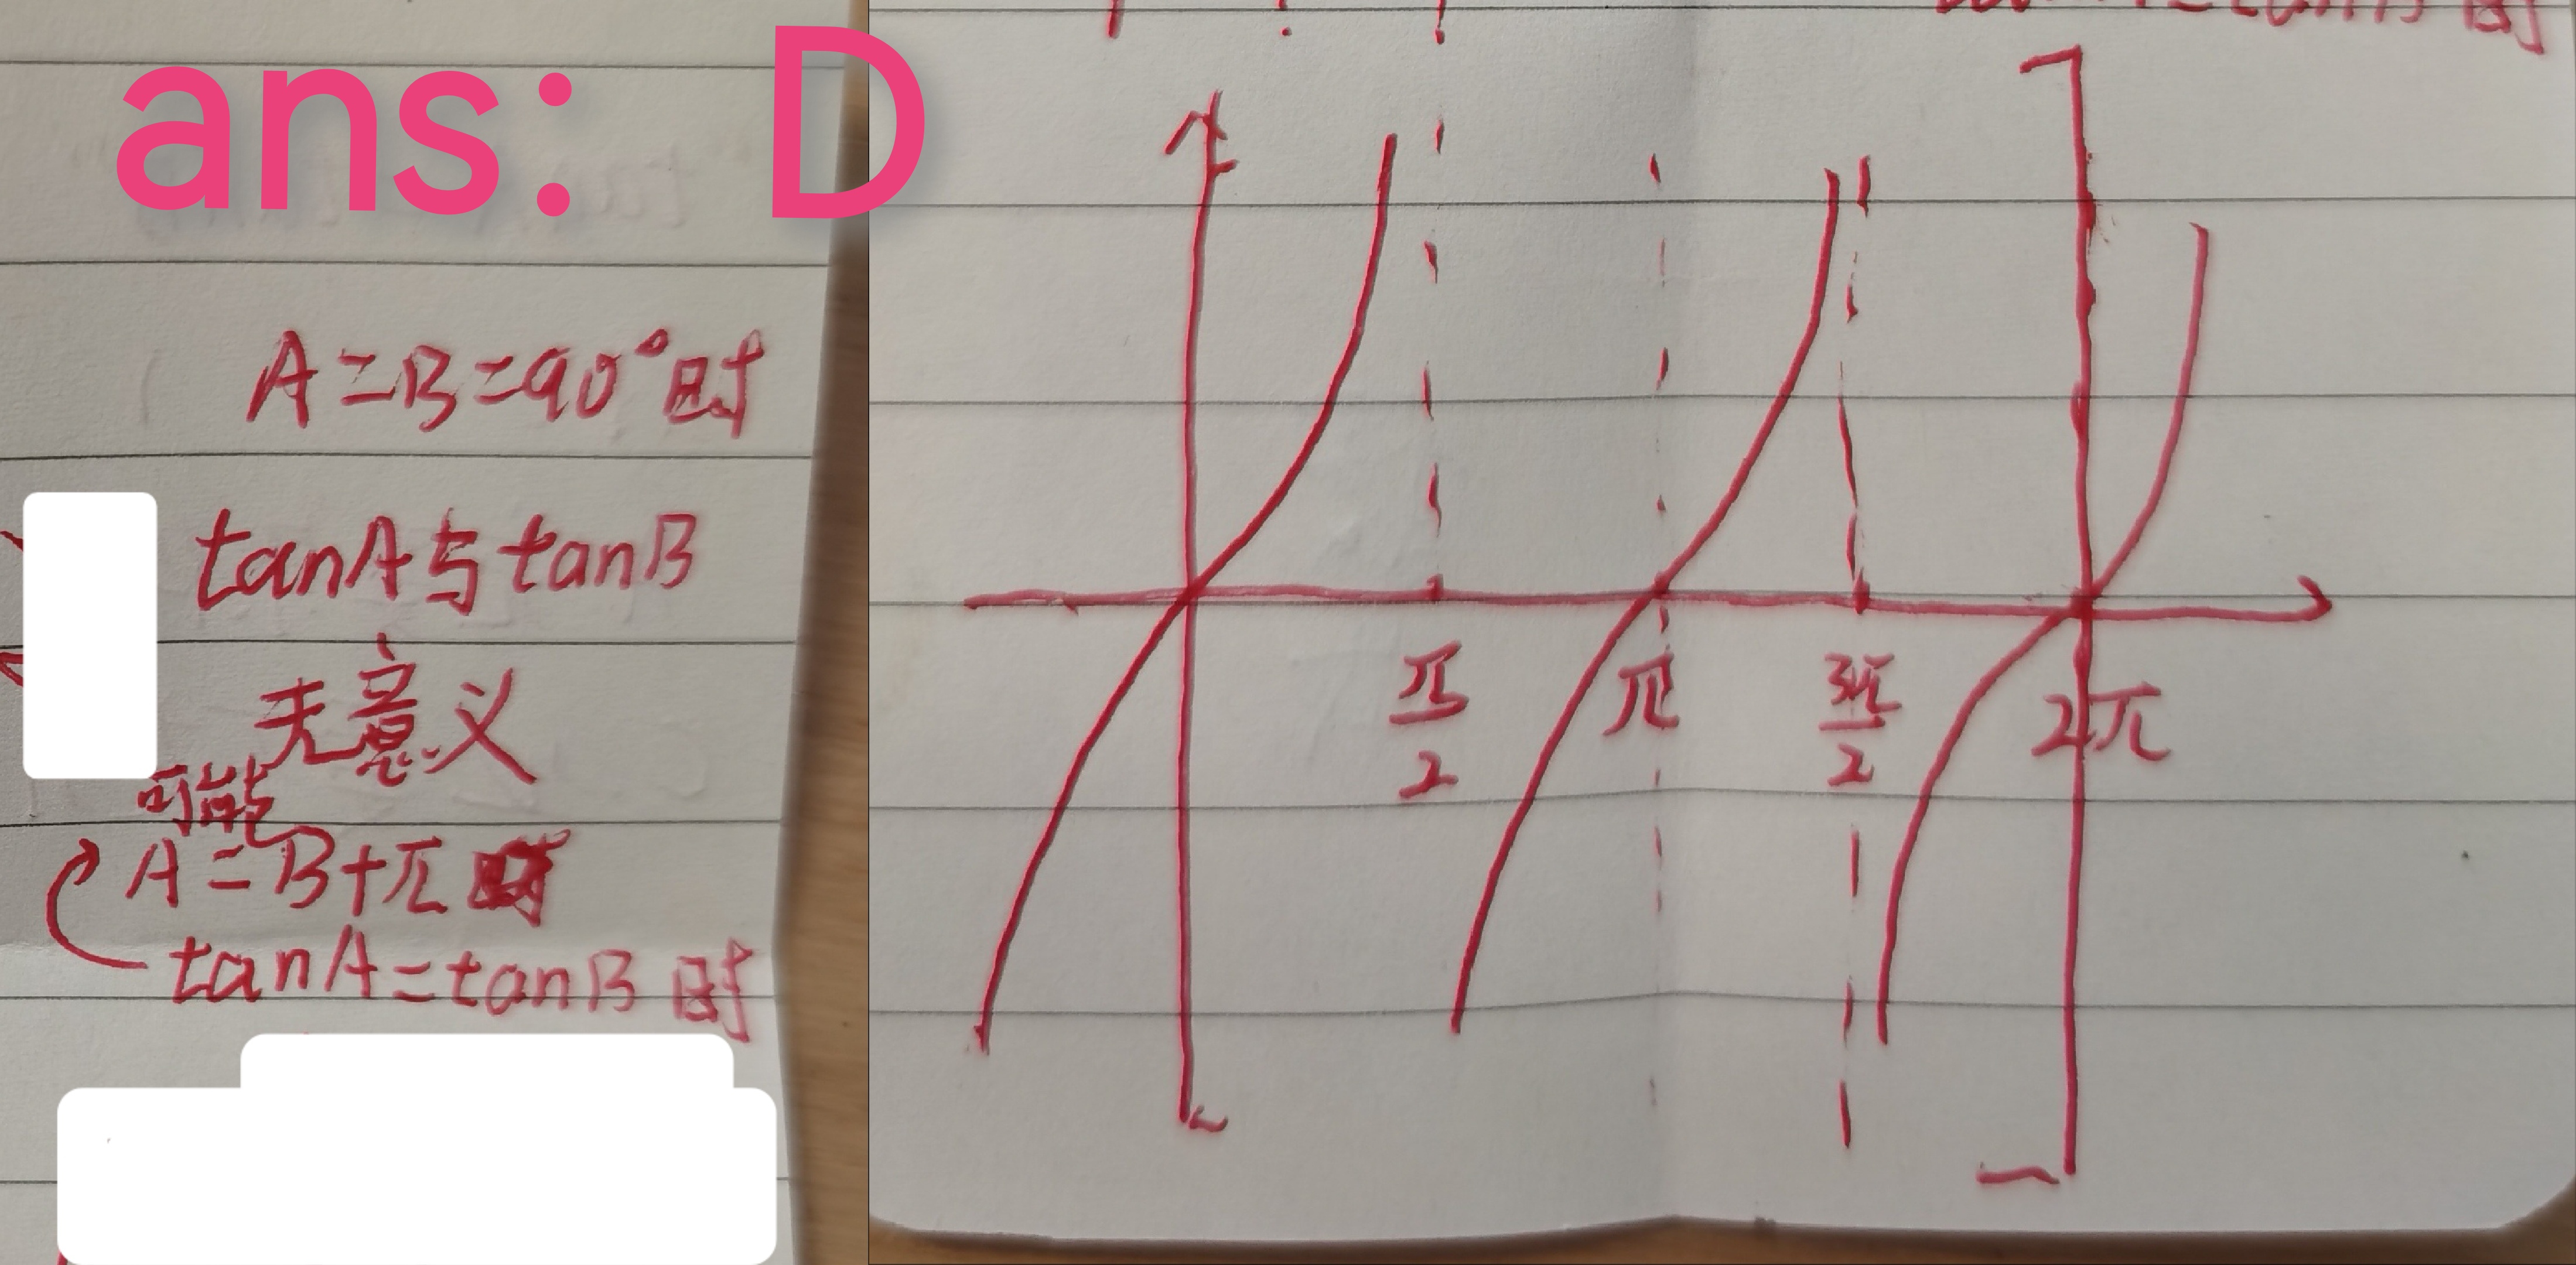 ans: D
A=B=90°时
tanA与tanB
无意义
可能
A=B+π时
tanA=tanB时
tanA=tanB时
π/2 π 3π/2 2π